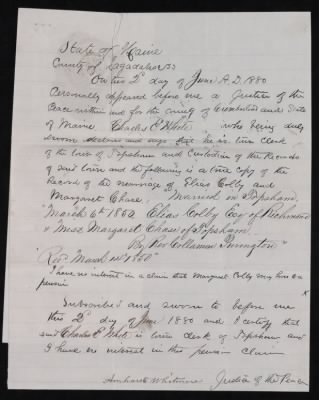 State of Maine
County of Sagadahoc ss
On this 2d day of June A.D. 1880
Personally appeared before me a Justice of the
Peace within and for the county of Cumberland and State
of Maine Charles E White who being duly
sworn declares and says that he is town Clerk
of the town of Topsham and Custodian of the Records
of said town and the following is a true copy of the
Record of the marriage of Elias Colby and
Margaret Chase. Married in Topsham,
"March 6th 1850. Elias Colby Esq of Richmond
"Miss Margaret Chase of Topsham.
By Rev Collamer Purington"
Recd March 1850"
I have no interest in a claim that Margaret Colby may have to a
pension
Subscribed and sworn to before me
this 2d day of June 1880 and I certify that
said Charles E White is town clerk of Topsham and
I have no interest in this pension claim
Whitmore Justice of the Peace